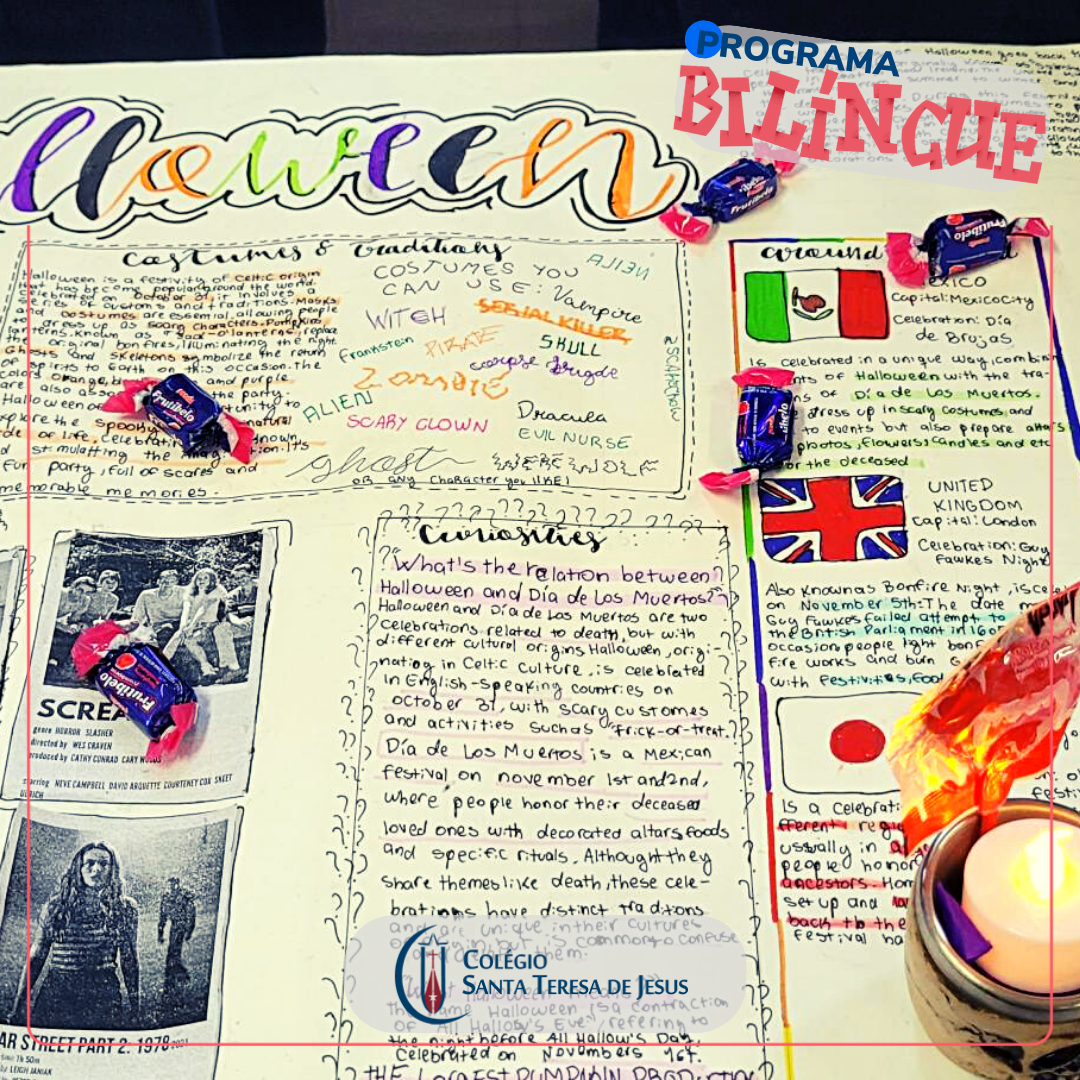 PROGRAMA
BILÍNGUE
lloween
Costumes & traditions
Halloween is a festivity of Celtic origin
that has become popular around the world.
celebrated on October 31, it involves a
series of customs and traditions. Masks
and costumes are essential, allowing people
to dress up as scary characters. Pumpkins,
lanterns, known as Jack-o'-lanterns, replace
the original bonfires, illuminating the night.
Ghosts and skeletons symbolize the return
of spirits to Earth on this occasion. The
colors orange, b and purple
are also asso the party.
Halloween o tunity to
explore the spooky natural
de of life, celebrati nown
d stimulating the imagination. It's
Fun party, full of scares and
memorable memories.
COSTUMES YOU
CAN USE: Vampire
AJIEN
WITCH
SERIAL KILLER
Frankstein
PIRATE
SKULL
corpse brigde
Zombie
ALIEN
SCARY CLOWN
Dracula
EVIL NURSE
ghost
WEREWOLF
OR ANY character you LIKE!
around
MEXICO
Capital: Mexico City
Celebration: Día
de Brujas
Is celebrated in a unique way, combin
nts of Halloween with the tra-
ns of Día de Los Muertos.
dress up in scary costumes and
to events but also prepare altars
photos, flowers, candles and etc
for the deceased
UNITED
KINGDOM
capital: London
Celebration: Guy
Fawkes Night
Also known as Bonfire Night, is cele
on November 5th. The date m
Guy Fawkes failed attempt to
the British Parliament in 160
occasion people light bonf
Fire works and burn G
with festivities, food
Is a celebrati
fferent regi
usually in a
people honor
ancestors. Hom
set up and la
back to the
festival ha
Curiosities
"What's the relation between
Halloween and Día de Los Muertos?"
Halloween and Día de Los Muertos are two
celebrations related to death, but with
different cultural origins Halloween, origi-
nating in Celtic culture, is celebrated
in English-speaking countries on
october 31, with scary customes
and activities such as "trick-or-treat."
Día de Los Muertos is a Mexican
festival on november 1st and 2nd,
where people honor their deceased
loved ones with decorated altars, foods
and specific rituals. Although they
share themes like death, these cele-
brations have distinct traditions
and are unique in their cultures
origin, but is common to confuse
them.
Halloween
the name Halloween is a contraction
of "All Hallow's Eve", refering to
the night before All Hallow's Day,
celebrated on Novembers 1st.
THE LARGEST PUMPKIN PRODUCTION
SCREA
genre HORROR SLASHER
directed by WES CRAVEN
produced by CATHY CONRAD CARY WOODS
starring NEVE CAMPBELL DAVID ARQUETTE COURTENEY COX SKEET
ULRICH
AR STREET PART 2: 1978
1h 50m
LEIGH JANIAK
Frutibelo
Frutibelo
Frutibelo
Frutibelo
COLÉGIO
SANTA TERESA DE JESUS